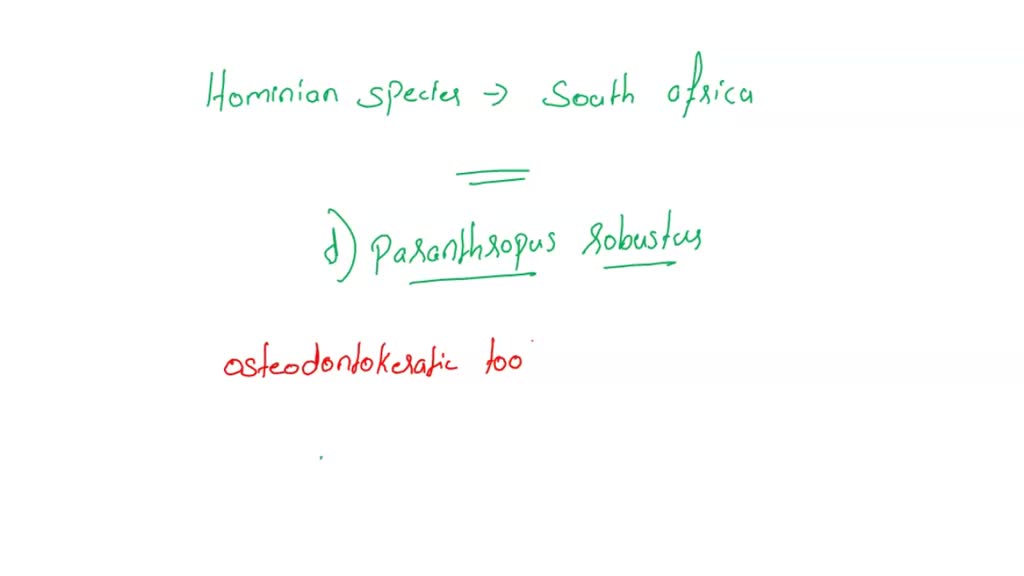 Hominian species → South africa
d) paranthropus robustus
osteodontokeratic too